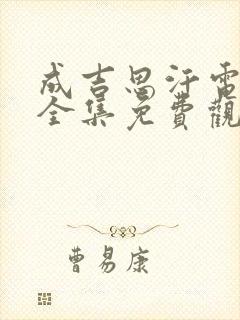 成吉思汗電
全集免費觀
曹易康